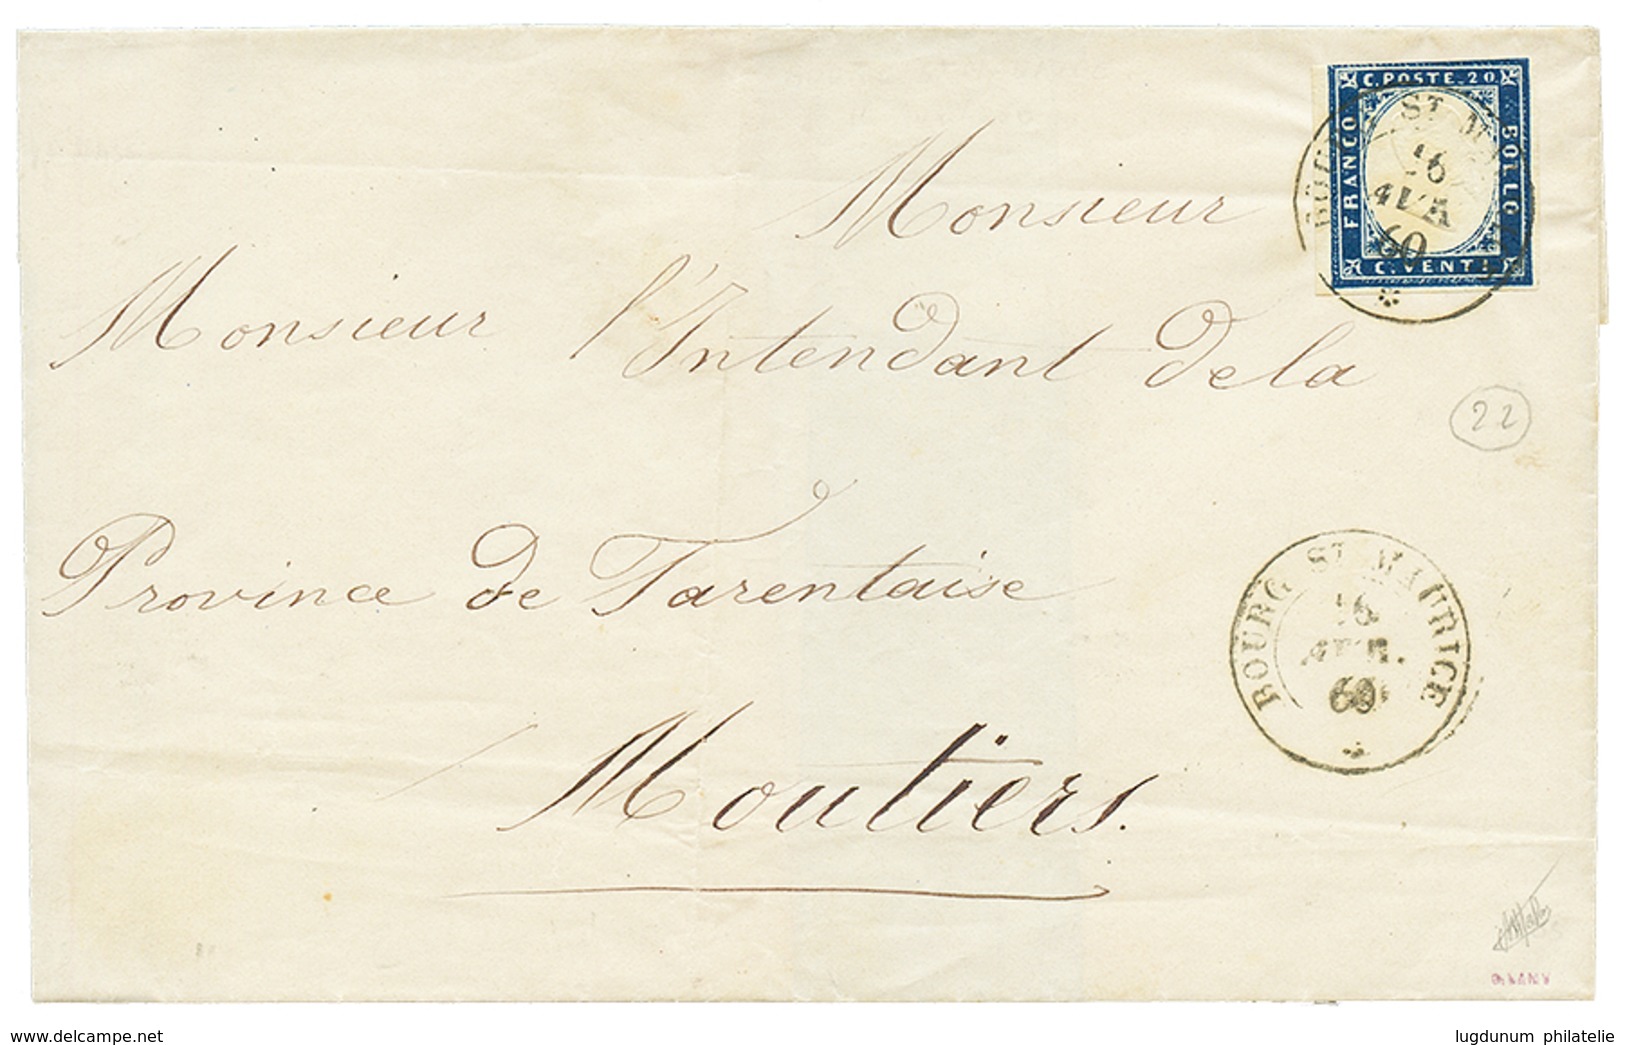 C. POSTE. 20
FRANCO
BOLLO
C. VENTI
ST
60
Monsieur
Monsieur l'Intendant de la
22
Province de Tarentaise
BOURG ST MAURICE
60
Moutiers.
delcampe.net
lugdunum philatelie